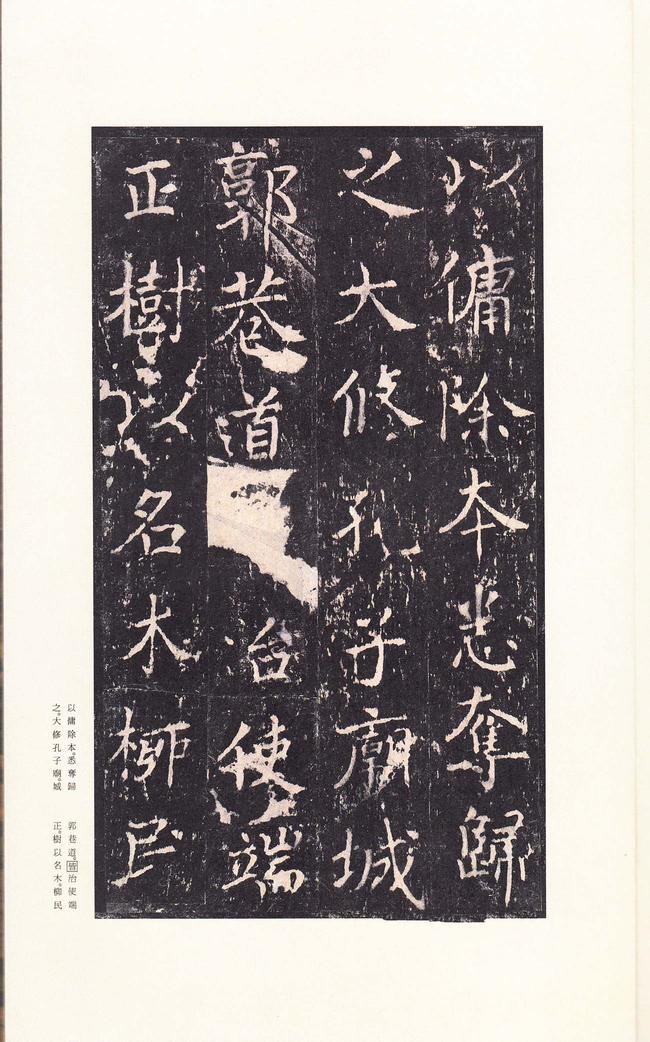 以傭除本悉奪歸
之大修孔子廟城
郭巷道治使端
正樹以名木柳民
以傭除本。悉奪歸
之。大修孔子廟。城
郭巷道。皆治使端
正。樹以名木。柳民